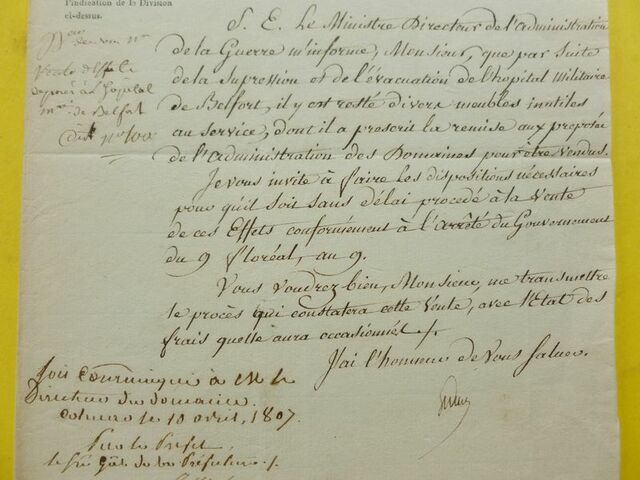 l'indication de la Division
ci-dessus.
Vente d'Effets
déposés à l'hopital
m.re de Belfort
S. E. Le Ministre Directeur de l'administration
de la Guerre m'informe, Monsieur, que par suite
de la supression et de l'évacuation de l'hopital militaire
de Belfort, il y est resté divers meubles inutiles
au service, dont il a prescrit la remise aux préposés
de l'administration des Domaines pour être vendus.
Je vous invite à faire les dispositions nécessaires
pour qu'il soit sans délai procédé à la Vente
de ces Effets conformément à l'arrêté du Gouvernement
du 9 floréal, an 9.
Vous voudrez bien, Monsieur, me transmettre
le procès qui constatera cette Vente, avec l'Etat des
frais quelle aura occasionnés /.
J'ai l'honneur de Vous Saluer.
Soit Communiqué à M. le
Directeur du domaine.
Colmar le 10 avril, 1807.
Pour le Préfet,
le Sré Gál de la Préfecture /.